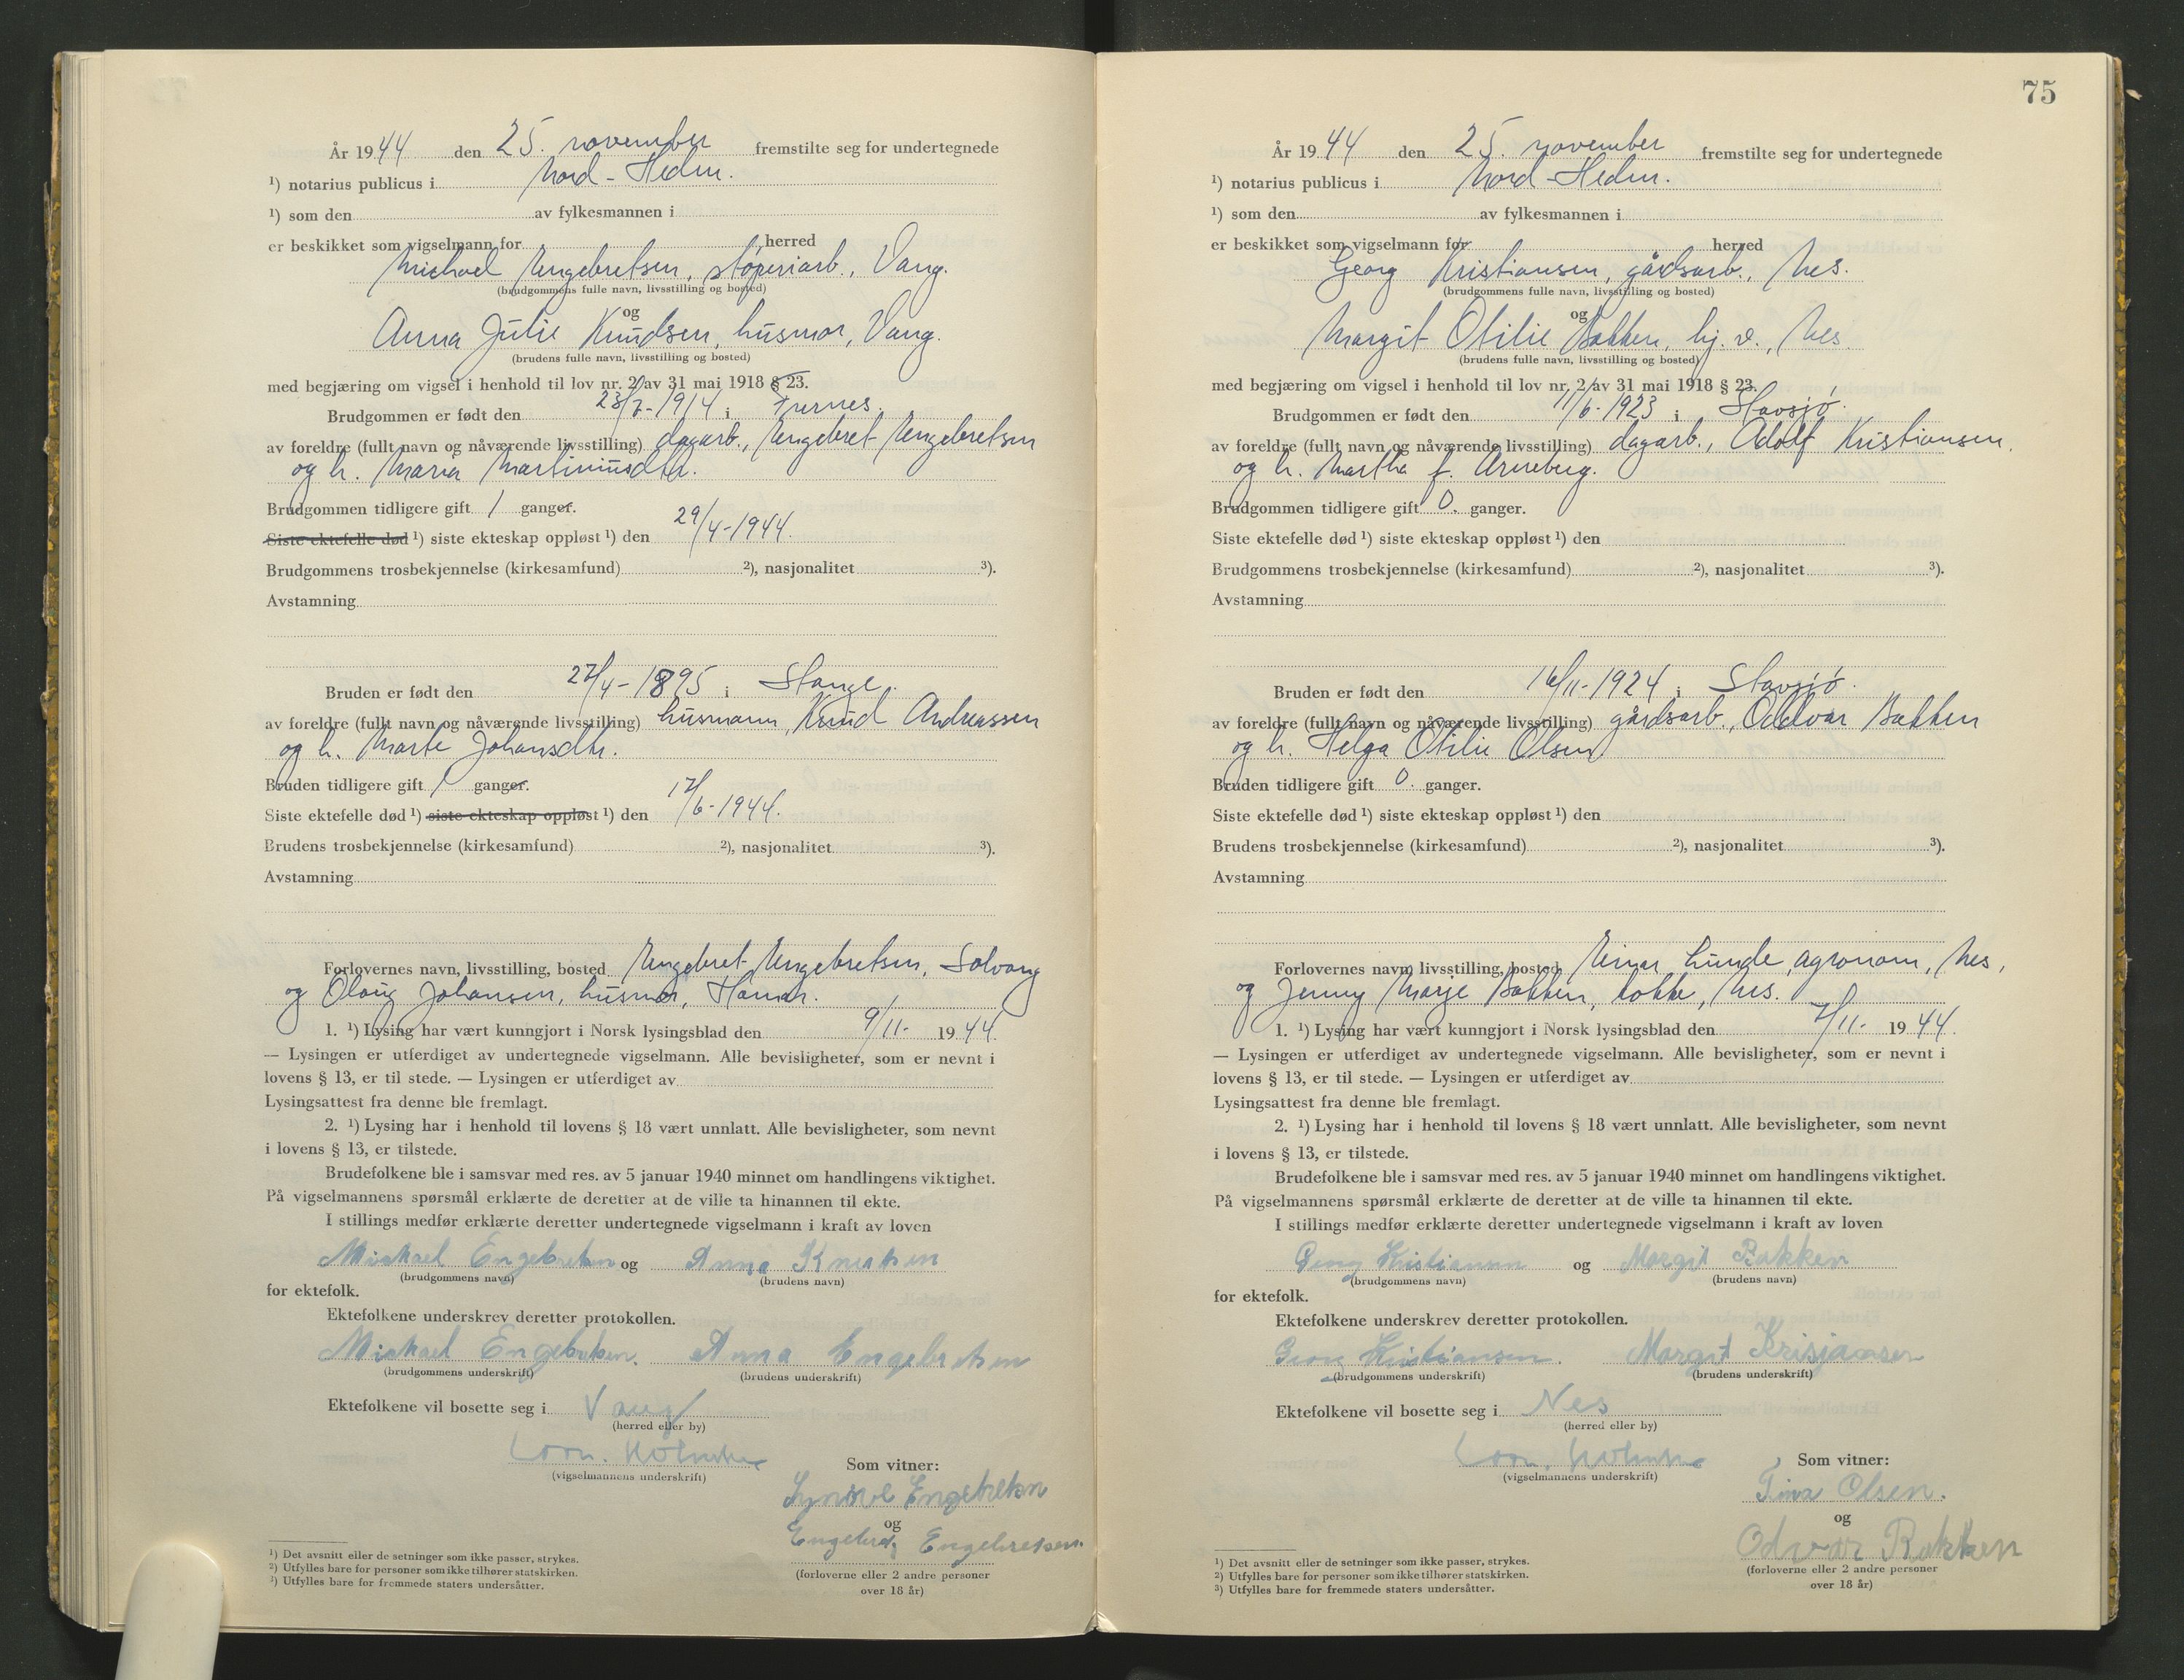 År 1944 den 25. november fremstilte seg for undertegnede
¹) notarius publicus i Nord-Hedm.
¹) som den av fylkesmannen i
er beskikket som vigselmann for herred
Michael Engebretsen, støperiarb., Vang.
(brudgommens fulle navn, livsstilling og bosted)
og
Anna Julie Knudsen, husmor, Vang.
(brudens fulle navn, livsstilling og bosted)
med begjæring om vigsel i henhold til lov nr. 2 av 31 mai 1918 § 23.
Brudgommen er født den 23/7-1914 i Furnes.
av foreldre (fullt navn og nåværende livsstilling) dagarb., Engebret Engebretsen
og h. Maria Martinusdtr.
Brudgommen tidligere gift 1 ganger.
Siste ektefelle død ¹) siste ekteskap oppløst ¹) den 29/4-1944.
Brudgommens trosbekjennelse (kirkesamfund) ²), nasjonalitet ³).
Avstamning
Bruden er født den 27/4-1895 i Stange.
av foreldre (fullt navn og nåværende livsstilling) husmann, Knud Andreassen
og h. Marte Johansdtr.
Bruden tidligere gift 1 ganger.
Siste ektefelle død ¹) siste ekteskap oppløst ¹) den 17/6-1944.
Brudens trosbekjennelse (kirkesamfund) ²), nasjonalitet ³).
Avstamning
Forlovernes navn, livsstilling, bosted Engebret Engebretsen, Solvang
og Olaug Johansen, husmor, Hamar.
1. ¹) Lysing har vært kunngjort i Norsk lysingsblad den 9/11- 1944.
— Lysingen er utferdiget av undertegnede vigselmann. Alle bevisligheter, som er nevnt i
lovens § 13, er til stede. — Lysingen er utferdiget av
Lysingsattest fra denne ble fremlagt.
2. ¹) Lysing har i henhold til lovens § 18 vært unnlatt. Alle bevisligheter, som nevnt
i lovens § 13, er tilstede.
Brudefolkene ble i samsvar med res. av 5 januar 1940 minnet om handlingens viktighet.
På vigselmannens spørsmål erklærte de deretter at de ville ta hinannen til ekte.
I stillings medfør erklærte deretter undertegnede vigselmann i kraft av loven
Mickael Engebretsen og Anna Knutsen
(brudgommens navn) (brudens navn)
for ektefolk.
Ektefolkene underskrev deretter protokollen.
Mickael Engebretsen. Anna Engebretsen
(brudgommens underskrift) (brudens underskrift)
Ektefolkene vil bosette seg i Vang
(herred eller by)
(vigselmannens underskrift)
Som vitner:
Synøve Engebretsen
og
Engebret Engebretsen.
(forloverne eller 2 andre personer
over 18 år)
¹) Det avsnitt eller de setninger som ikke passer, strykes.
²) Utfylles bare for personer som ikke tilhører statskirken.
³) Utfylles bare for fremmede staters undersåtter.
75
År 1944 den 25. november fremstilte seg for undertegnede
¹) notarius publicus i Nord-Hedm.
¹) som den av fylkesmannen i
er beskikket som vigselmann for herred
Georg Kristiansen, gårdsarb., Nes.
(brudgommens fulle navn, livsstilling og bosted)
og
Margit Otilie Bakken, hj. v., Nes.
(brudens fulle navn, livsstilling og bosted)
med begjæring om vigsel i henhold til lov nr. 2 av 31 mai 1918 § 23.
Brudgommen er født den 11/6-1923 i Stavsjø.
av foreldre (fullt navn og nåværende livsstilling) dagarb., Adolf Kristiansen,
og h. Martha f. Arneberg.
Brudgommen tidligere gift 0. ganger.
Siste ektefelle død ¹) siste ekteskap oppløst ¹) den
Brudgommens trosbekjennelse (kirkesamfund) ²), nasjonalitet ³).
Avstamning
Bruden er født den 16/11-1924 i Stavsjø.
av foreldre (fullt navn og nåværende livsstilling) gårdsarb., Oddvar Bakken
og h. Helga Otilie Olsen
Bruden tidligere gift 0. ganger.
Siste ektefelle død ¹) siste ekteskap oppløst ¹) den
Brudens trosbekjennelse (kirkesamfund) ²), nasjonalitet ³).
Avstamning
Forlovernes navn, livsstilling, bosted Einar Lunde, agronom, Nes,
og Jenny Marie Bakken, kokke, Nes.
1. ¹) Lysing har vært kunngjort i Norsk lysingsblad den 7/11- 1944.
— Lysingen er utferdiget av undertegnede vigselmann. Alle bevisligheter, som er nevnt i
lovens § 13, er til stede. — Lysingen er utferdiget av
Lysingsattest fra denne ble fremlagt.
2. ¹) Lysing har i henhold til lovens § 18 vært unnlatt. Alle bevisligheter, som nevnt
i lovens § 13, er tilstede.
Brudefolkene ble i samsvar med res. av 5 januar 1940 minnet om handlingens viktighet.
På vigselmannens spørsmål erklærte de deretter at de ville ta hinannen til ekte.
I stillings medfør erklærte deretter undertegnede vigselmann i kraft av loven
Georg Kristiansen og Margit Bakken
(brudgommens navn) (brudens navn)
for ektefolk.
Ektefolkene underskrev deretter protokollen.
Georg Kristiansen. Margit Krisjansen
(brudgommens underskrift) (brudens underskrift)
Ektefolkene vil bosette seg i Nes
(herred eller by)
(vigselmannens underskrift)
Som vitner:
Olsen.
og
Odvar Bakken
(forloverne eller 2 andre personer
over 18 år)
¹) Det avsnitt eller de setninger som ikke passer, strykes.
²) Utfylles bare for personer som ikke tilhører statskirken.
³) Utfylles bare for fremmede staters undersåtter.